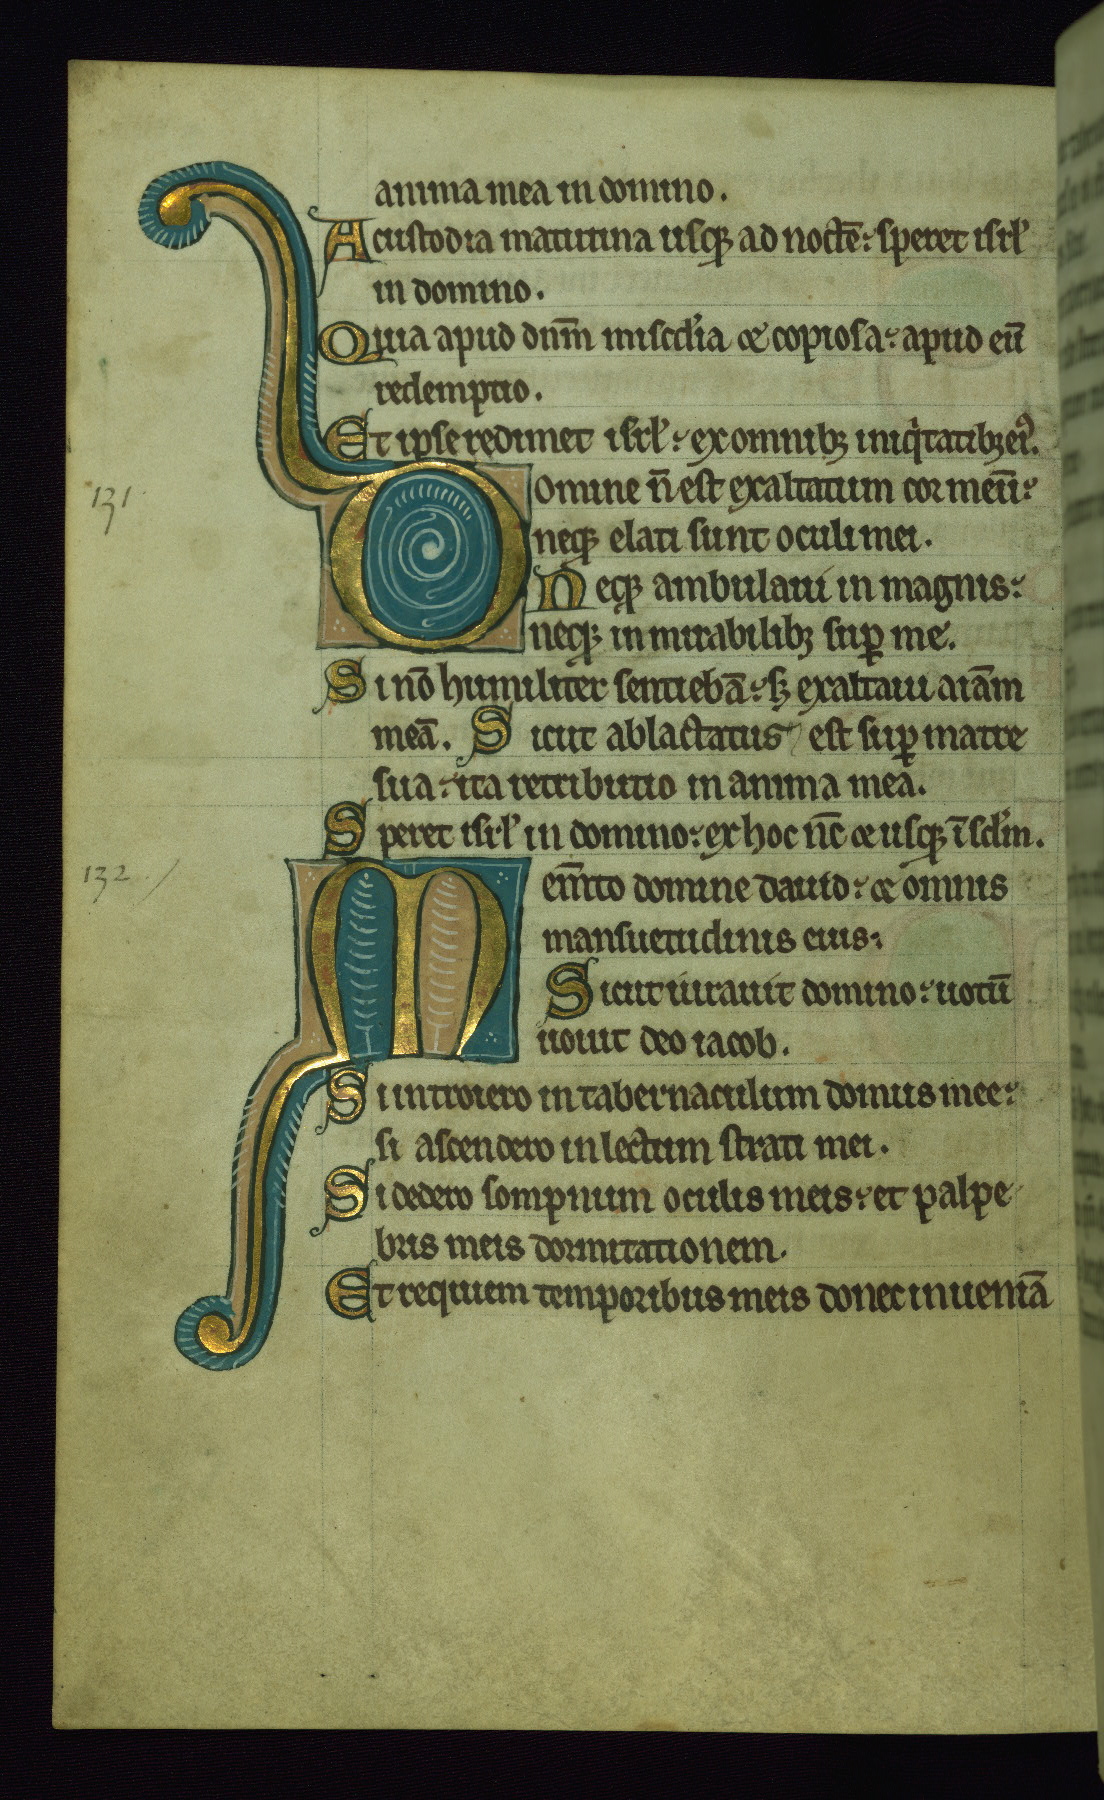 anima mea in domino.
A custodia matutina usq; ad noctē: speret isrl̄
in domino.
Quia apud dn̄m misc̄dia et copiosa: apud eū
redemptio.
Et ipse redimet isrl̄: ex omnib; iniqͥtatib; eiꝰ.
131
Domine n̄ est exaltatum cor meū:
neq; elati sunt oculi mei.
Neq; ambulaui in magnis:
neq; in mirabilib; suꝑ me.
Si nō humiliter sentiebā: s; exaltaui aīam
meā. Sicut ablactatus est suꝑ matre
sua: ita retributio in anima mea.
Speret isrl̄ in domino: ex hoc nc̄ et usq; ī sclm̄.
132
Mem̄to domine dauid: et omnis
mansuetudinis eius:
Sicut iurauit domino: uotū
uouit deo iacob.
Si introiero in tabernaculum domus mee:
si ascendero in lectum strati mei.
Si dedero sompnum oculis meis: et palpe
bris meis dormitationem.
Et requium temporibus meis donec inueniā